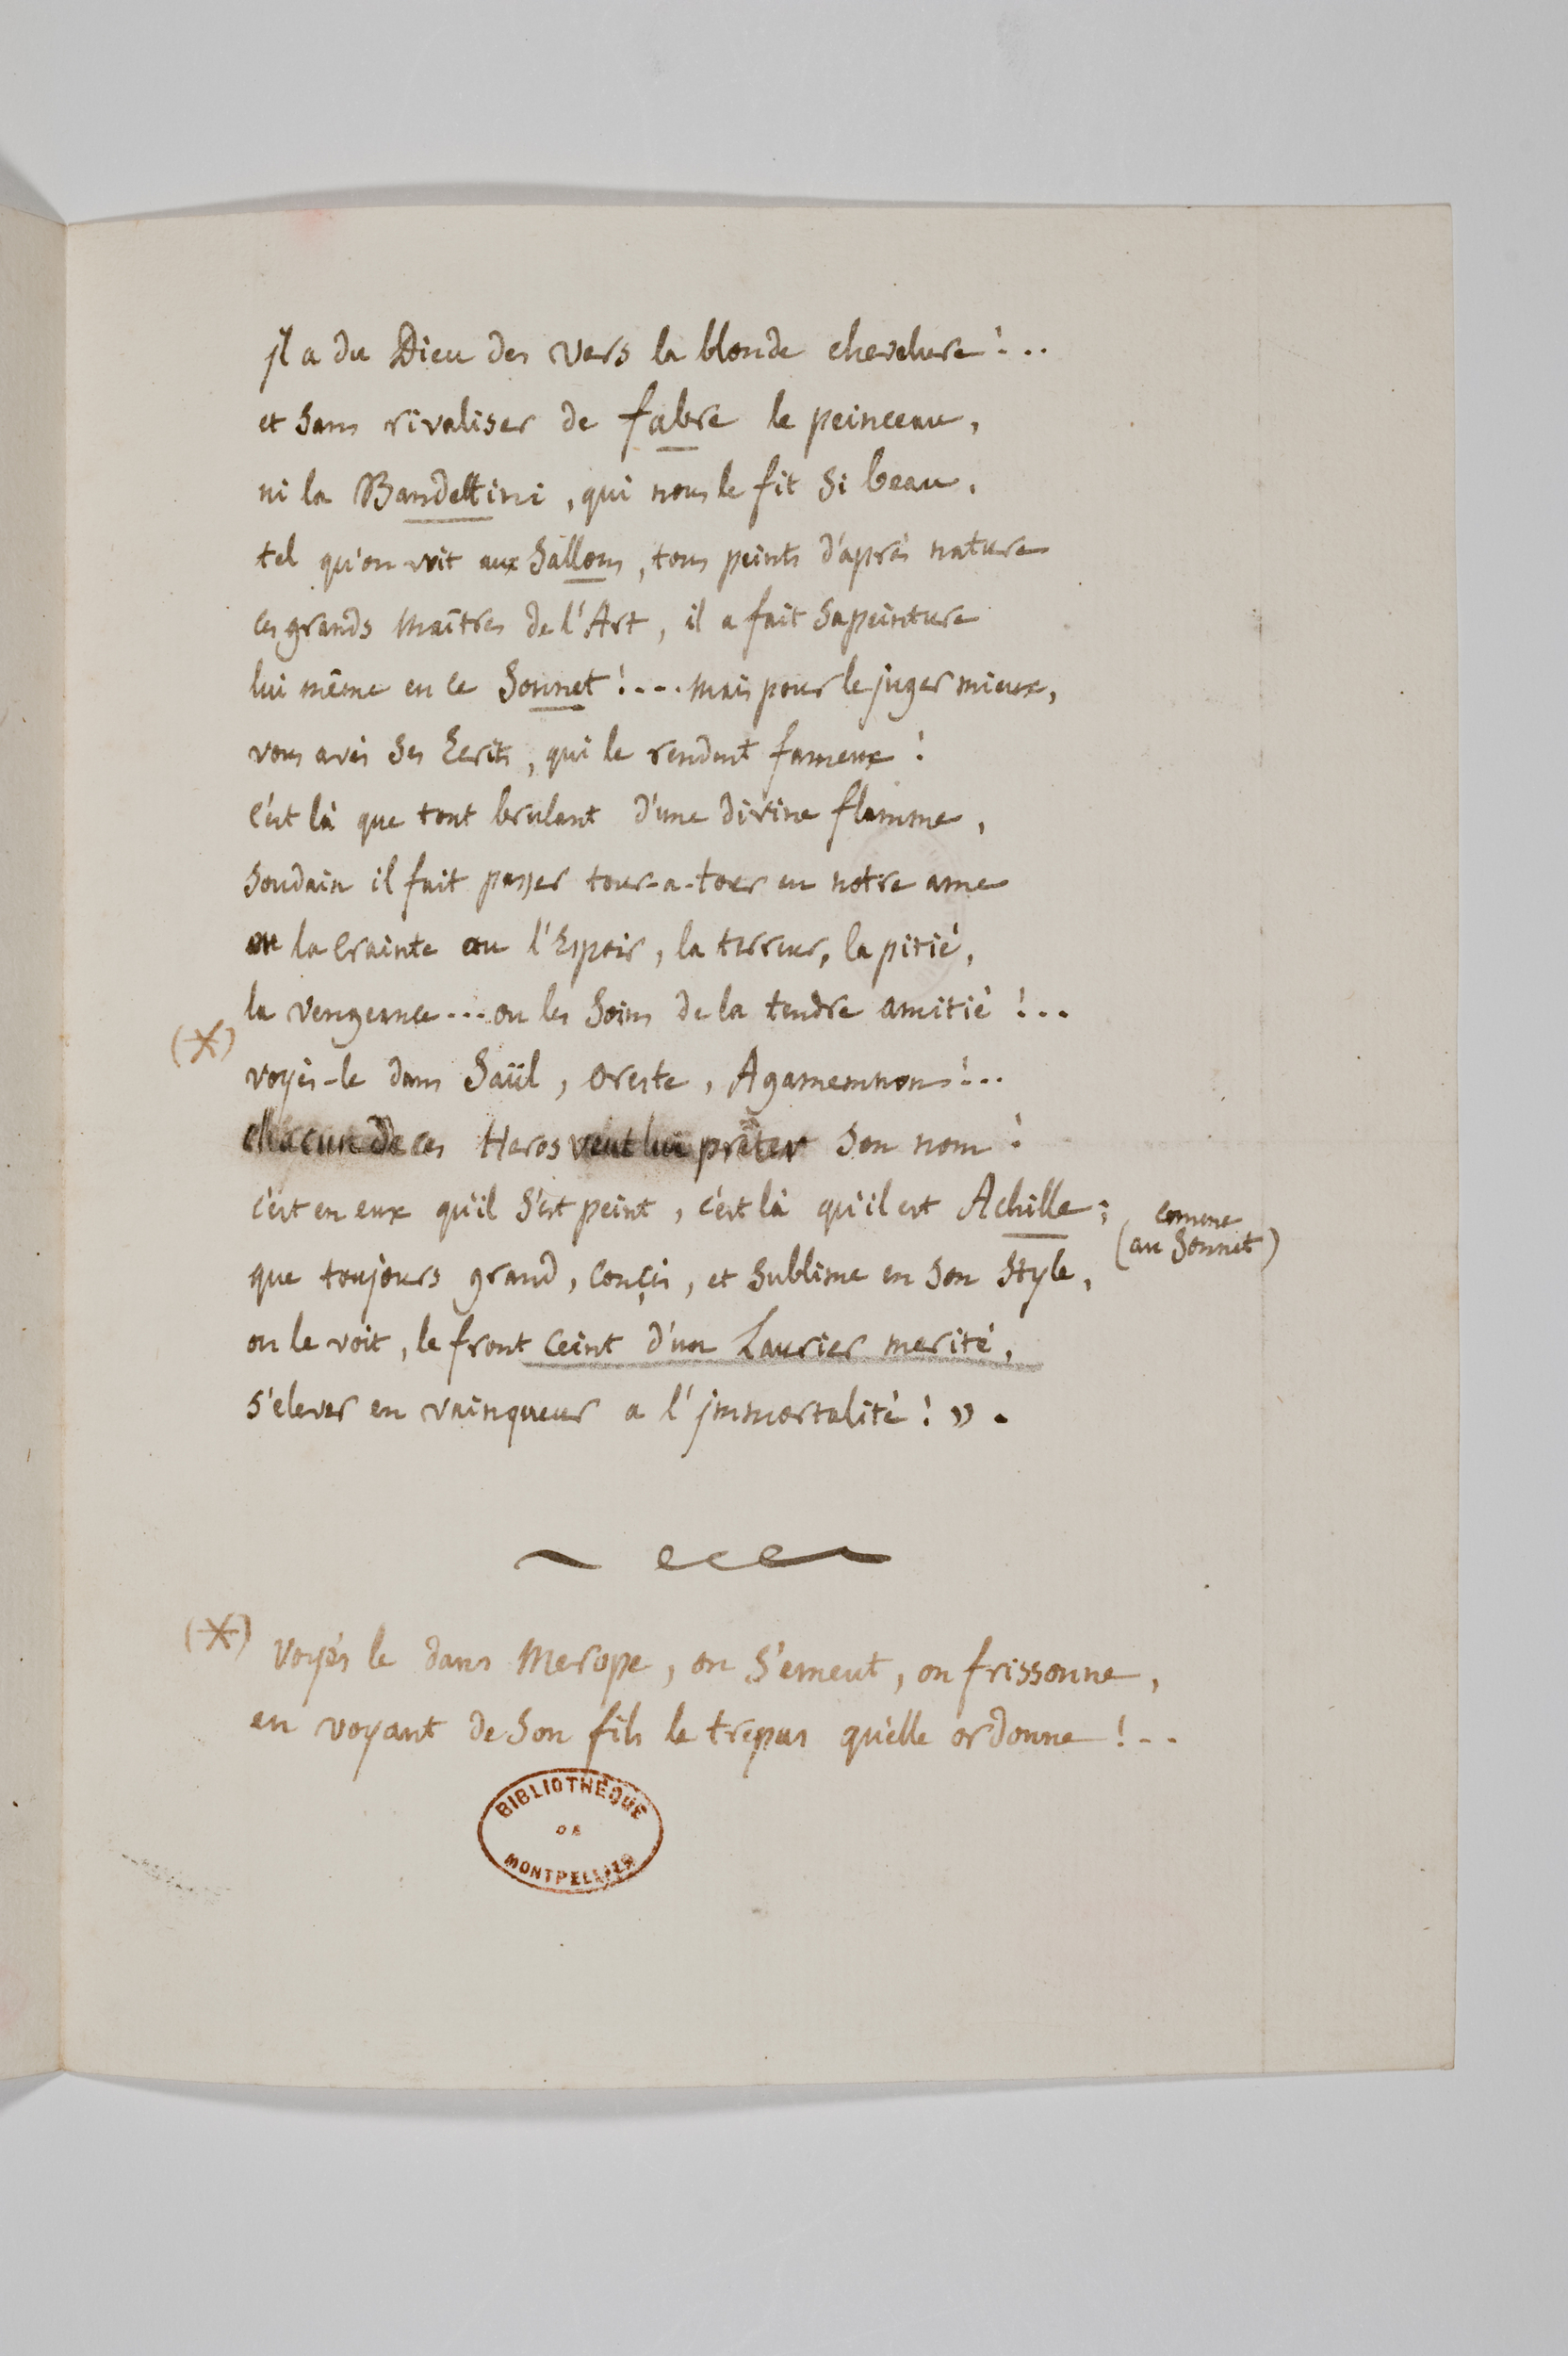 jl a du Dieu des vers la blonde chevelure !...
et sans rivaliser de fabre le peinceau,
ni la Bandettini, qui nous le fit si beau,
tel qu'on voit aux Sallons, tous peints d'après nature
ces grands maîtres de l'Art, il a fait sa peinture
lui même en ce Sonnet !.... mais pour le juger mieux,
vous avés ses Ecrits, qui le rendent fameux !
c'est là que tout brulant d'une divine flamme,
soudain il fait passer tour-a-tour en notre ame
ou la crainte ou l'Espoir, la terreur, la pitié,
la vengeance... ou les soins de la tendre amitié !...
(*)
voyés-le dans Saül, oreste, Agamemnon !...
chacun de ces Heros veut lui prêter son nom !
c'est en eux qu'il s'est peint, c'est là qu'il est Achille ;
comme
(au sonnet)
que toujours grand, conçis, et sublime en son style,
on le voit, le front ceint d'un Laurier merité,
s'elever en vainqueur a l'jmmortalité ! ».
(*) voyés le dans Merope, on s'emeut, on frissonne,
en voyant de son fils le trepas qu'elle ordonne !..
BIBLIOTHÈQUE
DE
MONTPELLIER